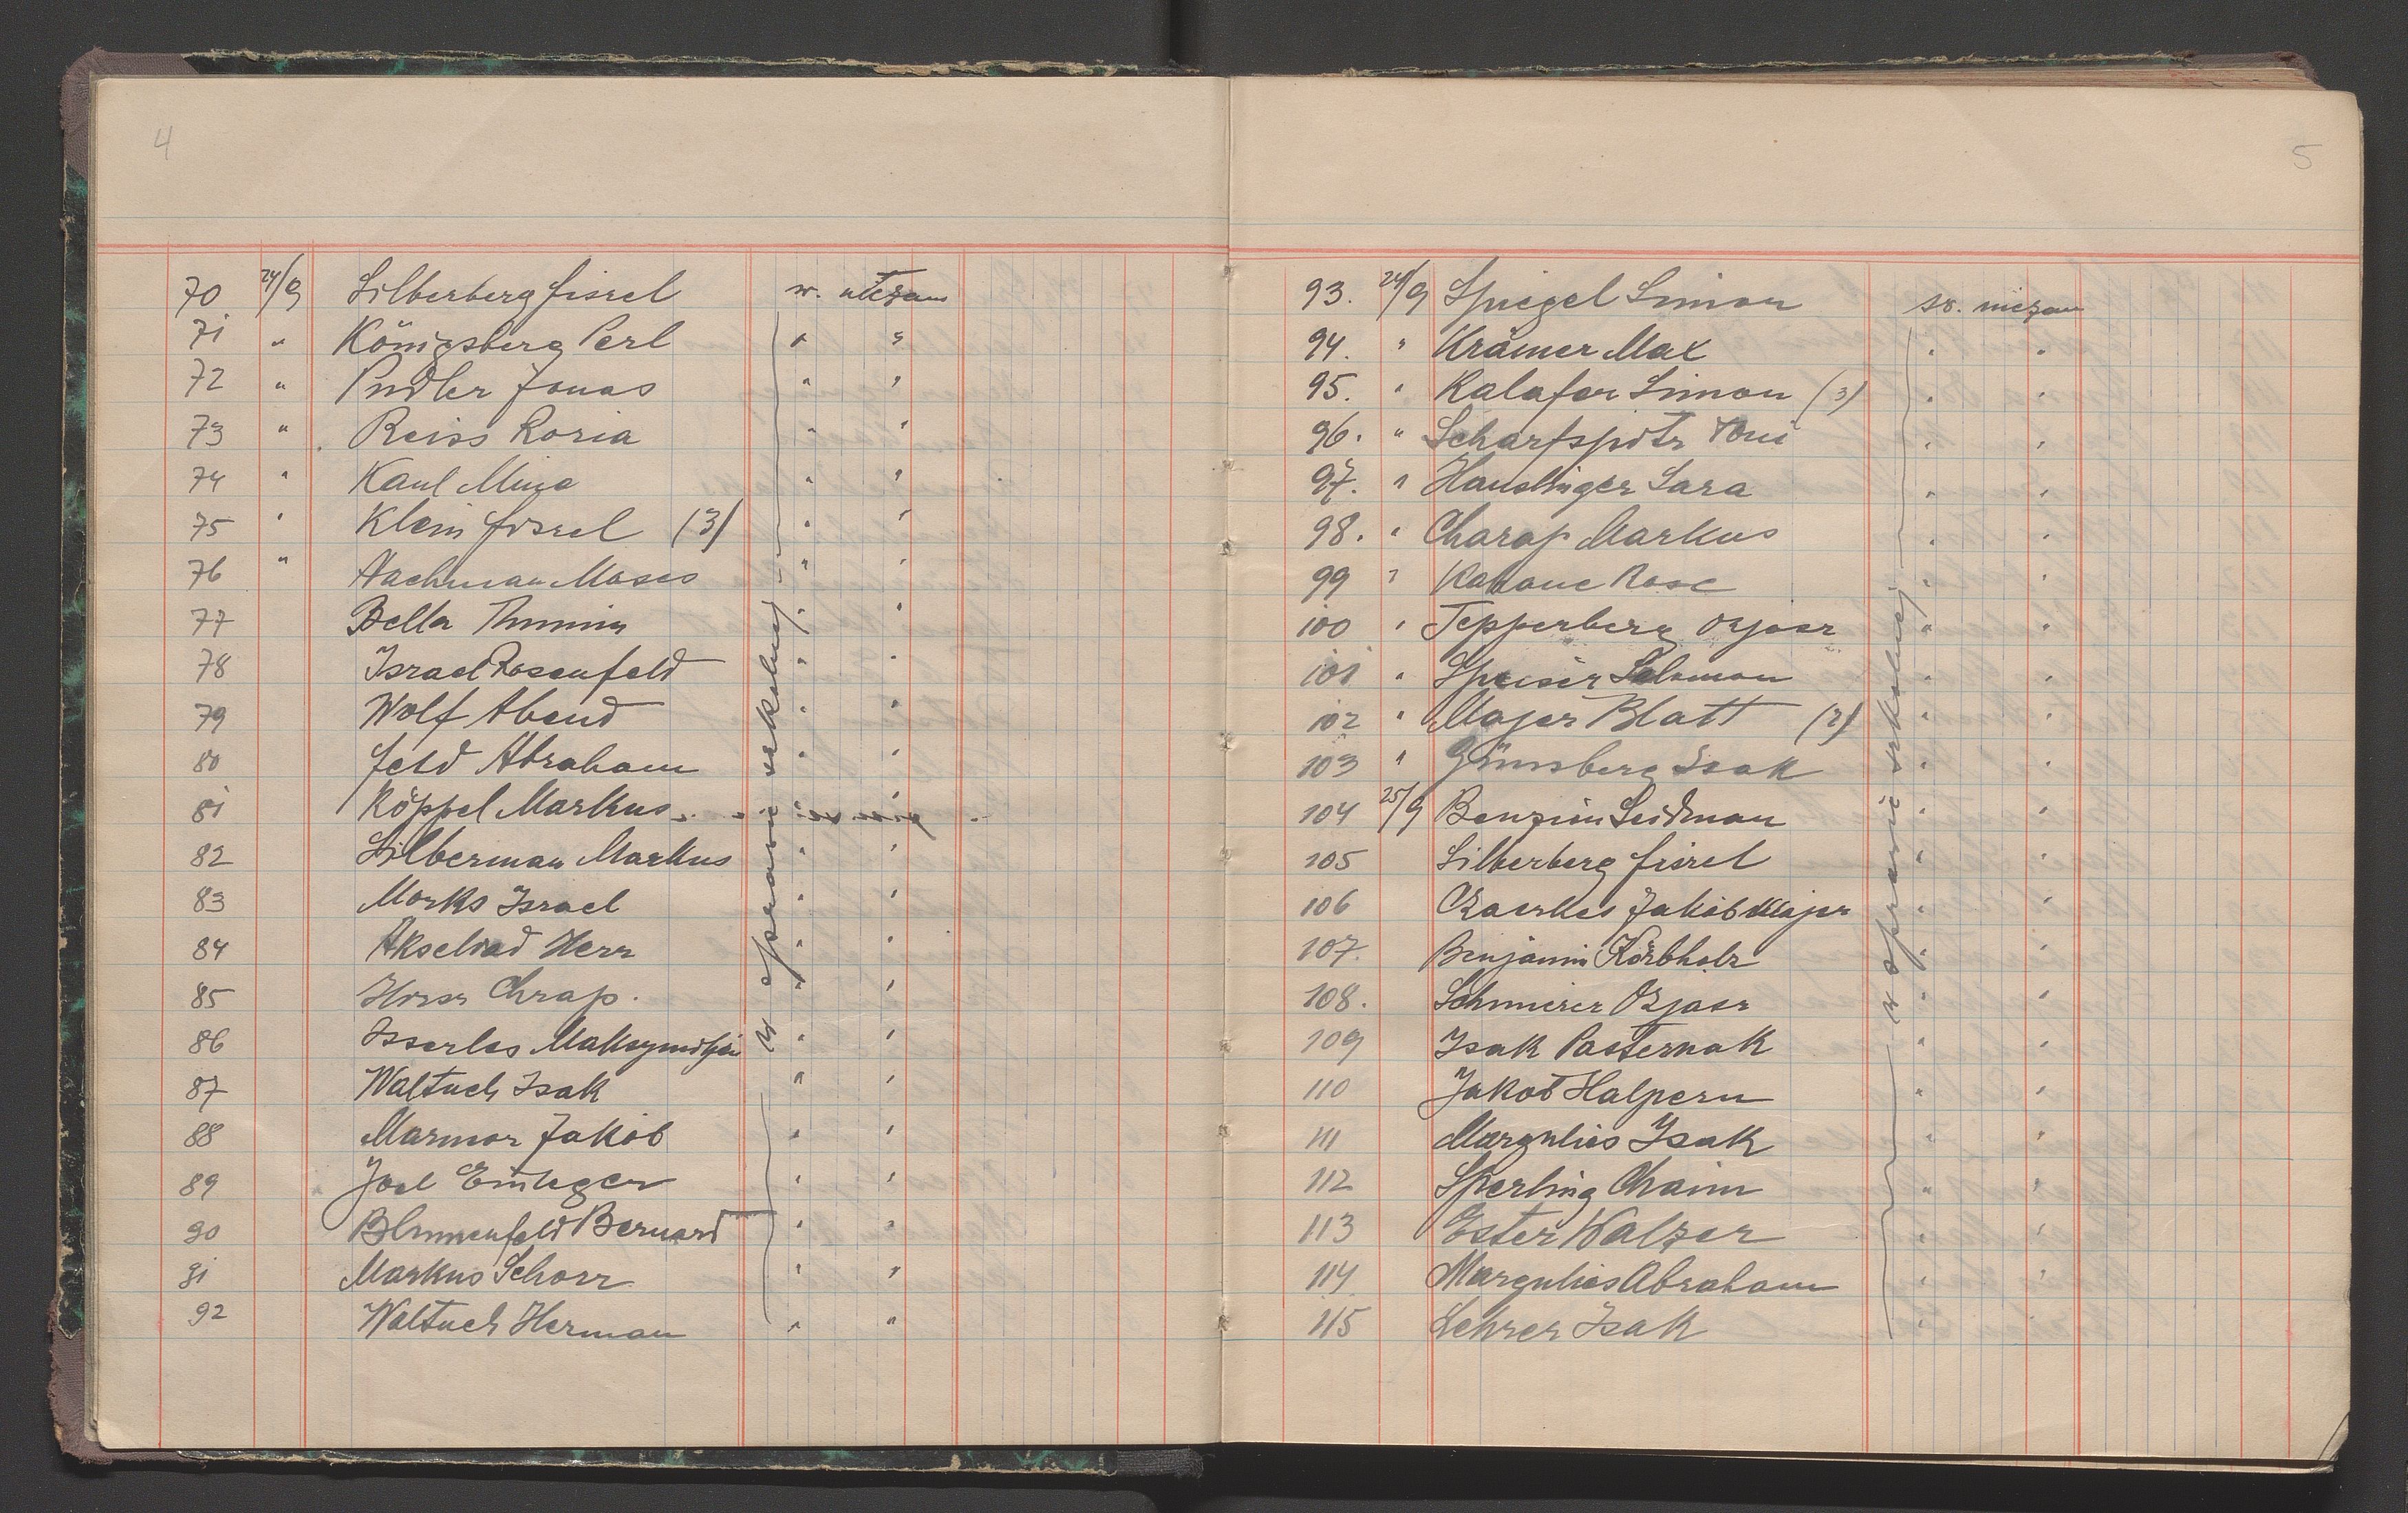 4
70 24/9 Silberberg fisrel w. niezam
71 " Königsberg Perl " "
72 " Pudler Jonas " "
73 " Reiss Roria " "
74 " Kaul Mina " "
75 " Klein fisrel (3) " "
76 " Nachman Moses " "
77 Bella Thumim " "
78 Israel Rosenfeld " "
79 Wolf Abend " "
80 feld Abraham " "
81 Köppel Markus "
82 Silberman Markus " "
83 Marks Israel " "
84 Akselrad Herr " "
85 Hirsr Chrap. " "
86 Isserles Maksymiljan " "
87 Waltuch Isak " "
88 Marmor Jakób " "
89 Joel " "
90 Blumenfeld Bernard " "
91 Markus Schorr " "
92 Waltuch Herman " "
w sprawie szkolnej
5
93. 24/9 Spiegel Simon św. niezam
94. " Krämer Max " "
95. " Kalafer Simon (3) " "
96. " Scharfspitz Toni " "
97. " Hauslinger Sara " "
98. " Charap Markus " "
99 " Kahane Rose " "
100 " Tepperberg Ozjasz " "
101 " Speiser Salomon " "
102 " Majer Blatt (2) " "
103 " Günsberg Isak " "
104 25/9 Benzion Seidman " "
105 Silberberg fisrel " "
106 Czaczkes Jakób Majer " "
107. Benjamin Korbholz " "
108. Schmierer Ozjasz " "
109 Isak Pasternak " "
110 Jakob Halpern " "
111 Margulies Isak " "
112 Sperling Chaim " "
113 Ester Walzer " "
114 Margulies Abraham " "
115 Lehrer Isak " "
w sprawie szkolnej